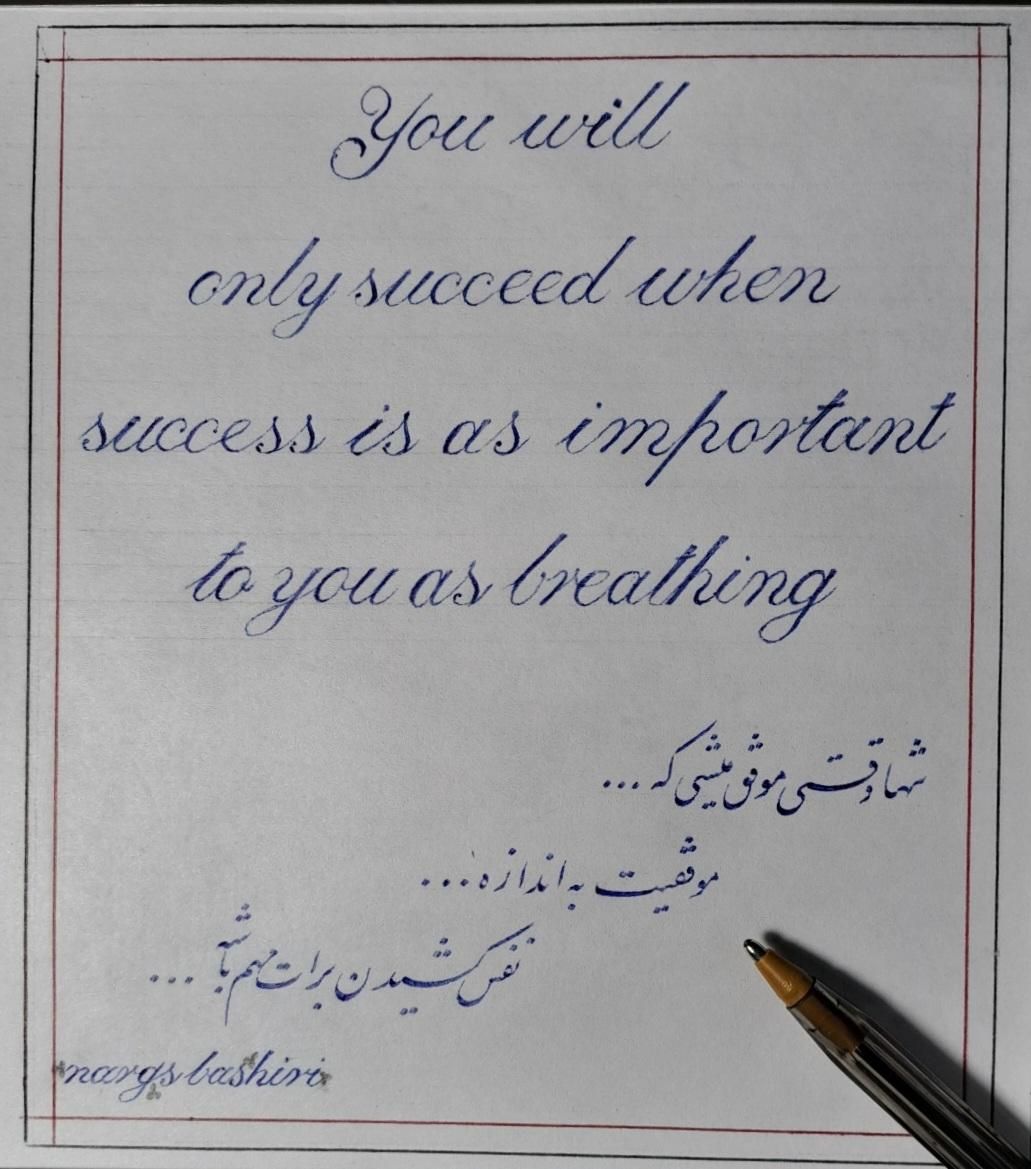 You will
only succeed when
success is as important
to you as breathing
شما وقتی موفق میشی که ...
موفقیت به اندازه ...
نفس کشیدن برات مهم باشه ...
nargs bashiri